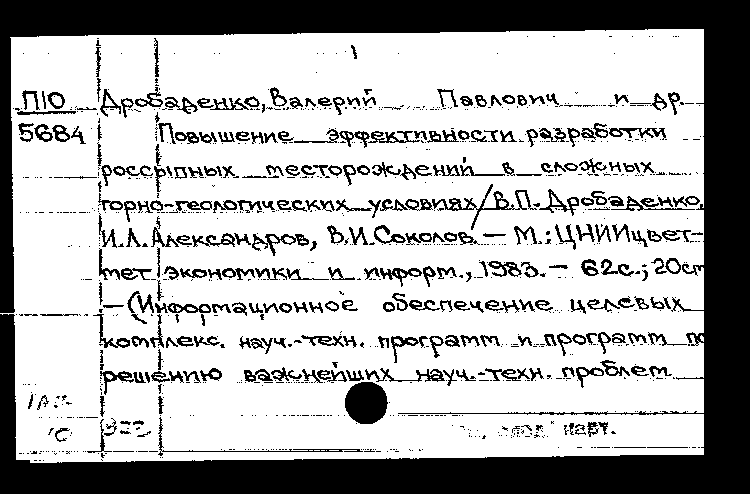 П10 Дробаденко, Валерий Павлович и др.
5684 Повышение эффективности разработки
россыпных месторождений в сложных
горно-геологических условиях / В.П. Дробаденко,
И.Л. Александров, В.И. Соколов. — М.: ЦНИИцвет-
мет экономики и информ., 1983. — 62с.; 20см
— (Информационное обеспечение целевых
комплекс. науч.-техн. программ и программ по
решению важнейших науч.-техн. проблем
след. карт.